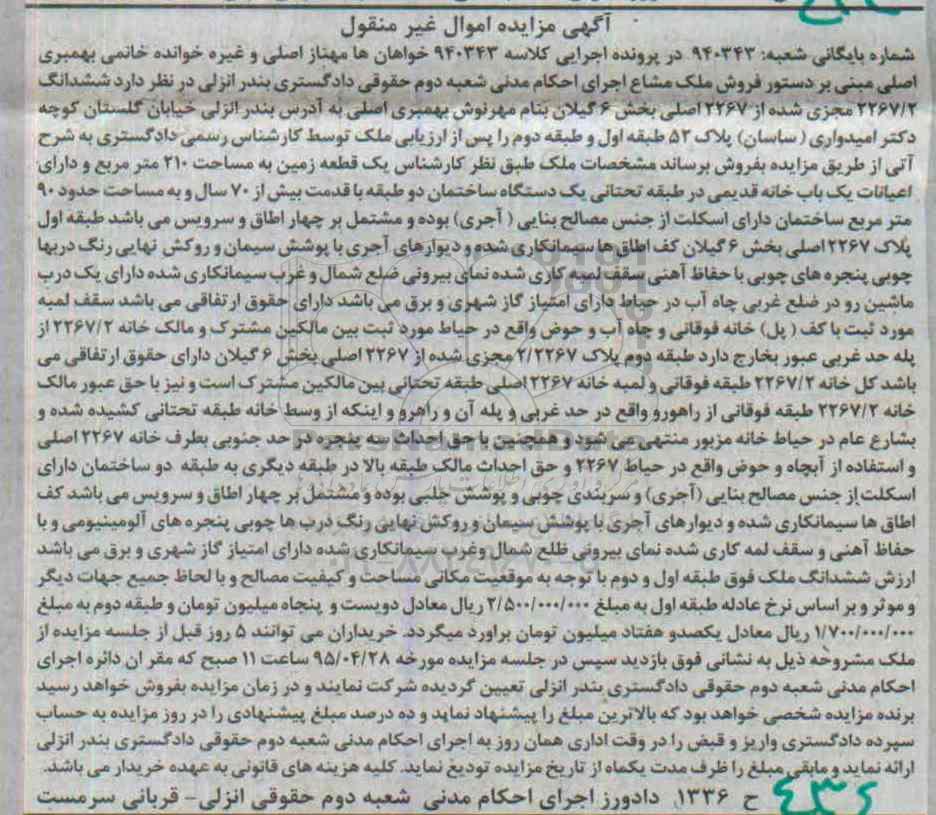 آگهی مزایده اموال غیر منقول
شماره بایگانی شعبه: ۹۴۰۳۴۳ در پرونده اجرایی کلاسه ۹۴۰۳۴۳ خواهان ها مهناز اصلی و غیره خوانده خانمی بهمبری
اصلی مبنی بر دستور فروش ملک مشاع اجرای احکام مدنی شعبه دوم حقوقی دادگستری بندر انزلی در نظر دارد ششدانگ
۲۲۶۷/۲ مجزی شده از ۲۲۶۷ اصلی بخش ۶ گیلان بنام مهرنوش بهمبری اصلی به آدرس بندر انزلی خیابان گلستان کوچه
دکتر امیدواری (ساسان) پلاک ۵۲ طبقه اول و طبقه دوم را پس از ارزیابی ملک توسط کارشناس رسمی دادگستری به شرح
آتی از طریق مزایده بفروش برساند مشخصات ملک طبق نظر کارشناس یک قطعه زمین به مساحت ۲۱۰ متر مربع و دارای
اعیانات یک باب خانه قدیمی در طبقه تحتانی یک دستگاه ساختمان دو طبقه با قدمت بیش از ۷۰ سال و به مساحت حدود ۹۰
متر مربع ساختمان دارای اسکلت از جنس مصالح بنایی (آجری) بوده و مشتمل بر چهار اطاق و سرویس می باشد طبقه اول
پلاک ۲۲۶۷ اصلی بخش ۶ گیلان کف اطاق ها سیمانکاری شده و دیوارهای آجری با پوشش سیمان و روکش نهایی رنگ دربها
چوبی پنجره های چوبی با حفاظ آهنی سقف لمبه کاری شده نمای بیرونی ضلع شمال و غرب سیمانکاری شده دارای یک درب
ماشین رو در ضلع غربی چاه آب در حیاط دارای امتیاز گاز شهری و برق می باشد دارای حقوق ارتفاقی می باشد سقف لمبه
مورد ثبت با کف (پل) خانه فوقانی و چاه آب و حوض واقع در حیاط مورد ثبت بین مالکین مشترک و مالک خانه ۲۲۶۷/۲ از
پله حد غربی عبور بخارج دارد طبقه دوم پلاک ۲/۲۲۶۷ مجزی شده از ۲۲۶۷ اصلی بخش ۶ گیلان دارای حقوق ارتفاقی می
باشد کل خانه ۲۲۶۷/۲ طبقه فوقانی و لمبه خانه ۲۲۶۷ اصلی طبقه تحتانی بین مالکین مشترک است و نیز با حق عبور مالک
خانه ۲۲۶۷/۲ طبقه فوقانی از راهورو واقع در حد غربی و پله آن و راهرو و اینکه از وسط خانه طبقه تحتانی کشیده شده و
بشارع عام در حیاط خانه مزبور منتهی می شود و همچنین با حق احداث سه پنجره در حد جنوبی بطرف خانه ۲۲۶۷ اصلی
و استفاده از آبچاه و حوض واقع در حیاط ۲۲۶۷ و حق احداث مالک طبقه بالا در طبقه دیگری به طبقه دو ساختمان دارای
اسکلت از جنس مصالح بنایی (آجری) و سربندی چوبی و پوشش حلبی بوده و مشتمل بر چهار اطاق و سرویس می باشد کف
اطاق ها سیمانکاری شده و دیوارهای آجری با پوشش سیمان و روکش نهایی رنگ درب ها چوبی پنجره های آلومینیومی و با
حفاظ آهنی و سقف لمه کاری شده نمای بیرونی ظلع شمال وغرب سیمانکاری شده دارای امتیاز گاز شهری و برق می باشد
ارزش ششدانگ ملک فوق طبقه اول و دوم با توجه به موقعیت مکانی مساحت و کیفیت مصالح و با لحاظ جمیع جهات دیگر
و موثر و بر اساس نرخ عادله طبقه اول به مبلغ ۲/۵۰۰/۰۰۰/۰۰۰ ریال معادل دویست و پنجاه میلیون تومان و طبقه دوم به مبلغ
۱/۷۰۰/۰۰۰/۰۰۰ ریال معادل یکصدو هفتاد میلیون تومان براورد میگردد. خریداران می توانند ۵ روز قبل از جلسه مزایده از
ملک مشروحه ذیل به نشانی فوق بازدید سپس در جلسه مزایده مورخه ۹۵/۰۴/۲۸ ساعت ۱۱ صبح که مقر ان دائره اجرای
احکام مدنی شعبه دوم حقوقی دادگستری بندر انزلی تعیین گردیده شرکت نمایند و در زمان مزایده بفروش خواهد رسید
برنده مزایده شخصی خواهد بود که بالاترین مبلغ را پیشنهاد نماید و ده درصد مبلغ پیشنهادی را در روز مزایده به حساب
سپرده دادگستری واریز و قبض را در وقت اداری همان روز به اجرای احکام مدنی شعبه دوم حقوقی دادگستری بندر انزلی
ارائه نماید و مابقی مبلغ را ظرف مدت یکماه از تاریخ مزایده تودیع نماید. کلیه هزینه های قانونی به عهده خریدار می باشد.
ح ۱۳۳۶ دادورز اجرای احکام مدنی شعبه دوم حقوقی انزلی- قربانی سرمست
۴۳۶